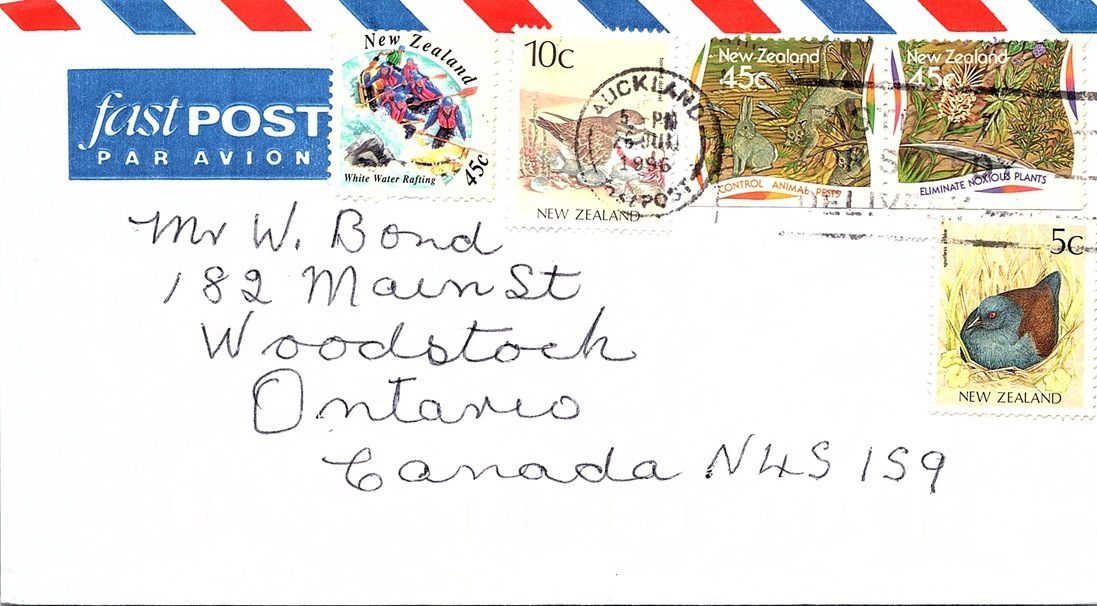 fast POST
PAR AVION
New Zealand
White Water Rafting
45c
10c
NEW ZEALAND
AUCKLAND
5 PM
JUN
1996
New Zealand
45c
CONTROL ANIMAL PESTS
New Zealand
45c
ELIMINATE NOXIOUS PLANTS
5c
NEW ZEALAND
Mr W. Bond
182 Main St
Woodstock
Ontario
Canada N4S 1S9